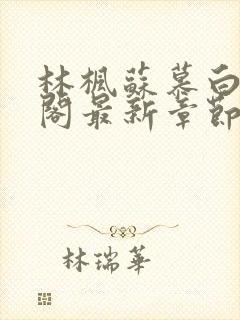 林楓蘇慕白
閣最新章節
林瑞華